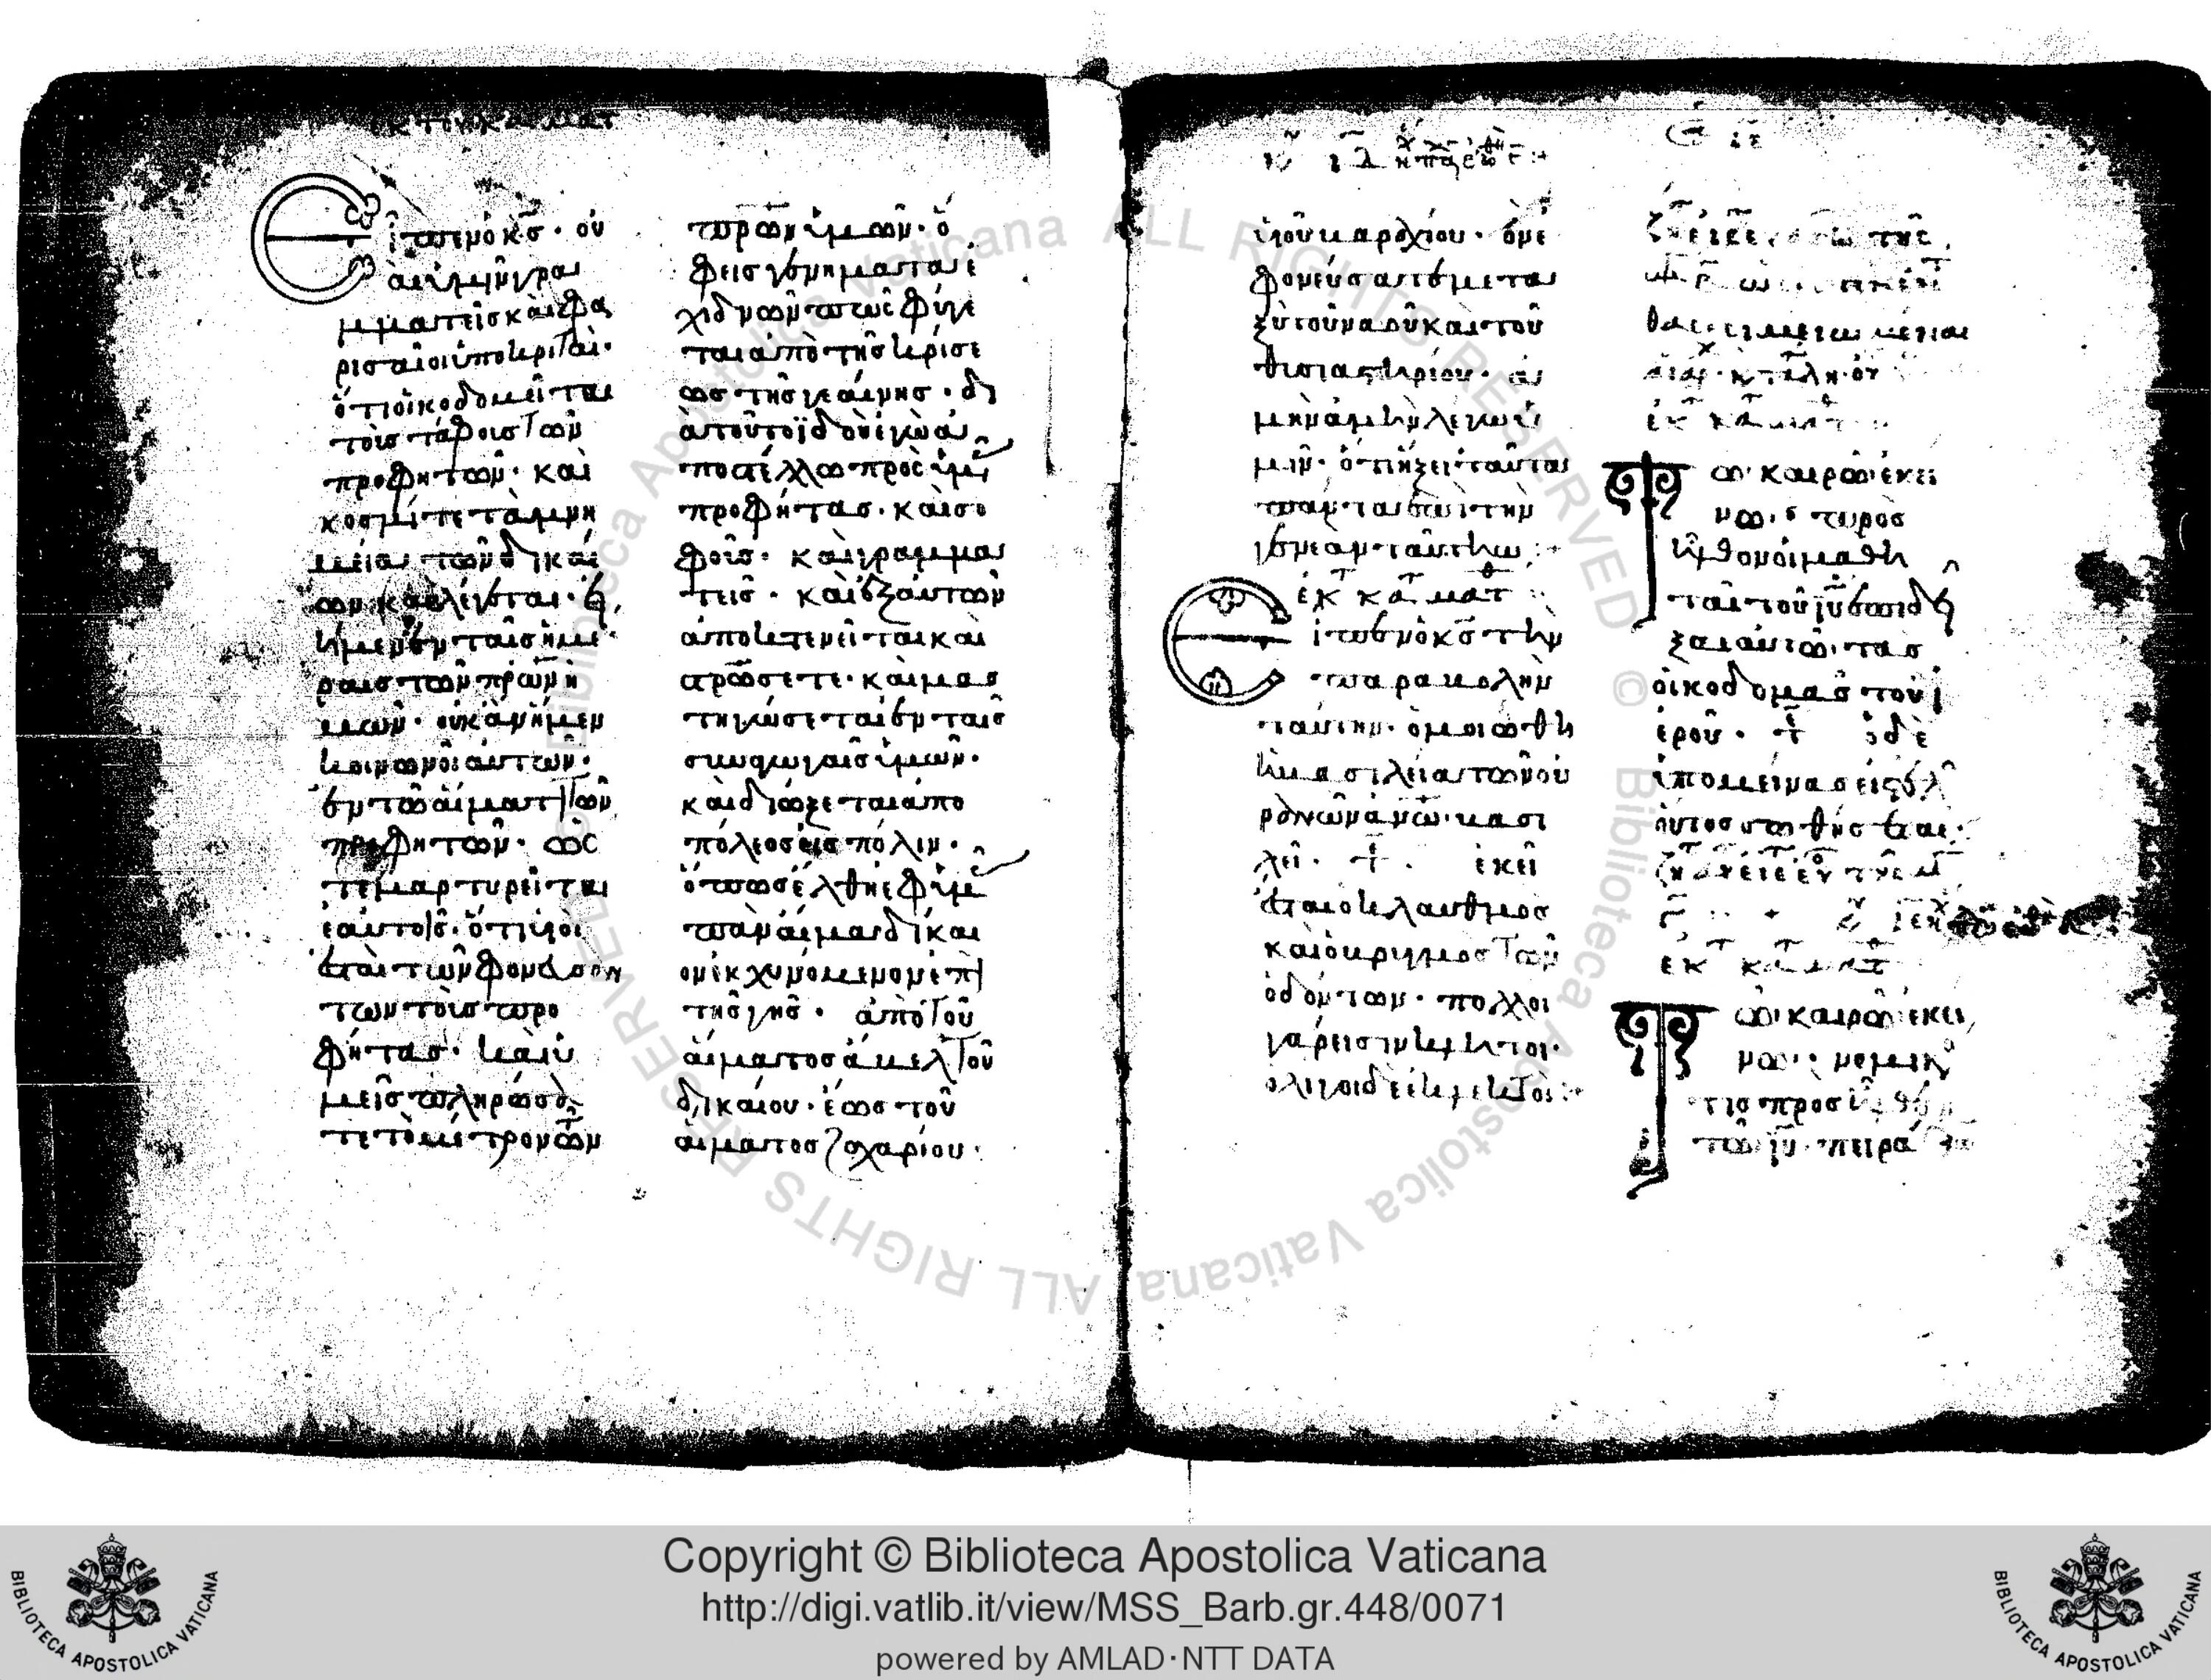 κ του κα ματ
Εἶπεν ὁ κ̅ς̅· οὐ
αὶ ὑμῖν γρα
μματεῖς καὶ φα
ρισαῖοι ὑποκριταὶ·
ὅτι οἰκοδομεῖται
τοῖς τάφοις τῶν
προφητῶν· καὶ
κοσμεῖτε τὰ μνη
μεῖα τῶν δικαί
ων καὶ λέγεται· εἰ
ἦμεν ἐν ταῖς ἡμέ
ραις τῶν π̅ρ̅ω̅ν ἡ
μῶν· οὐκ ἂν ἦμεν
κοινωνοὶ αὐτῶν·
ἐν τῶ αἵματι τῶν
προφητῶν· ὡς
τε μαρτυρεῖται
ἑαυτοῖς· ὅτι υἱοὶ
ἐσταὶ τῶν φονευσάν
των τοὺς προ
φήτας· καὶ ὑ
μεῖς πληρώσα
τε τὸ μέτρον τῶν
πρων ὑμῶν· ὁ
φεις γενήματα ἐ
χιδνῶν πῶς φύγε
ται ἀπὸ τῆς κρίσε
ως τῆς γεέννης· δι
ὰ τοῦτο ϊδοὺ ἐγὼ ἀ
ποστέλλω πρὸς ὑμᾶς
προφήτας· καὶ σο
φοὺς· καὶ γραμμα
τεῖς· καὶ ἐξ αὐτῶν
ἀποκτενεῖται καὶ
σ̅ρ̅ώσετε· καὶ μασ
τηγώσεται ἐν ταῖς
συναγωγαῖς ὑμῶν·
καὶ διώξεται ἀπο
πόλεος εἰς πόλιν·
ὅπως ἔλθη ἐφ' ὑμᾶς
πᾶν αἷμα δίκαι
ον ἐκχυνόμενον ἐπὶ
τῆς γῆς· ἀπὸ τοῦ
αἵματος ἄβελ τοῦ
δικαίου· ἕως τοῦ
αἵματος ζαχαρίου·
ὑιοῦ βαραχίου· ὃν ἐ
φονεύσατε μετα
ξὺ τοῦ ναοῦ καὶ τοῦ
θυσιαστηρίου· ἀ
μὴν ἀμὴν λέγω ὑ
μῖν· ὅτι ἥξει ταῦτα
πάντα ἐπὶ τὴν
γενεὰν ταύτην:
ἐκ τ κα ματθ
Εἶπεν ὁ κ̅ς̅ τὴν
παραβολὴν
ταύτην· ὁμοιώθη
ἡ βασιλεία τῶν οὐ
ρανῶν ἀ̅ν̅ω̅ βασι
λεῖ· τ̅· ἐκεῖ
ἔσται ὁ κλαυθμὸς
καὶ ὁ βρυγμὸς τῶν
ὀδόντων· πολλοὶ
γάρ εἰσιν κλητοὶ·
ὀλίγοι δὲ ἐκλεκτοὶ:
ἐκ τ κα ματθ
Τῶ καιρῶ ἐκεί
νω· προσ
ῆλθον οἱ μαθη
ταὶ τοῦ ι̅υ̅ ἐπιδεῖ
ξαι αὐτῶ· τὰς
οἰκοδομὰς τοῦ ἱ
εροῦ· τ̅ ὁ δὲ
ὑπομείνας εἰς τέλ
οὗτος σωθήσεται·
ἐκ τ κα ματθ
Τῶ καιρῶ ἐκεί
νω· νομικός
τις προσῆλθεν
τῶ ι̅υ̅· πειρά
Copyright © Biblioteca Apostolica Vaticana
http://digi.vatlib.it/view/MSS_Barb.gr.448/0071
powered by AMLAD·NTT DATA
BIBLIOTECA APOSTOLICA VATICANA
BIBLIOTECA APOSTOLICA VATICANA